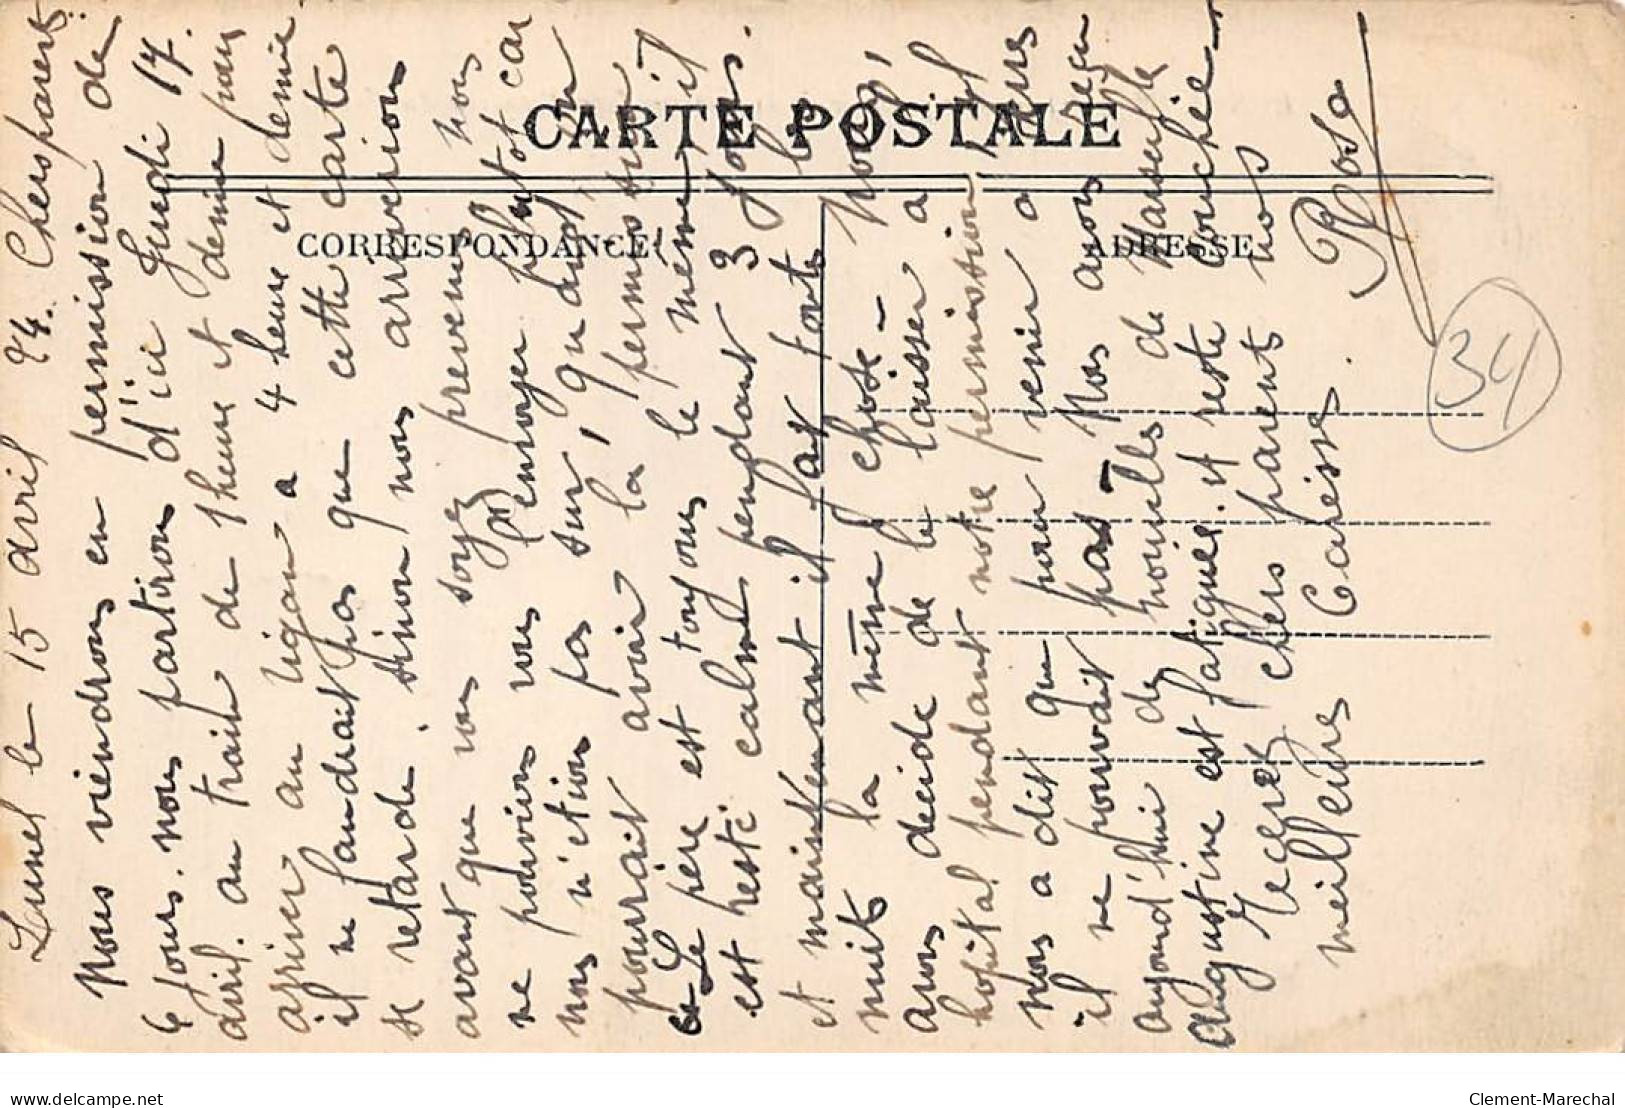 CARTE POSTALE
CORRESPONDANCE
ADRESSE
34
Lunel le 15 avril 24. Chers parents
Nous viendrons en permission de
6 jours. nous partirons d'ici Jeudi 17.
avril. au train de 1 heure et demie pour
arriver au vigan a 4 heure et demie
il ne faudrait pas que cette carte
se retarde. sinon nous arriverion
avant que vous soyez prevenus nous
ne pouvions vous l'envoyer plutot car
nous n'étion pas sur, qu'aust on
pourrait avoir la permossio
Le père est toujours le même il
est resté calme pendant 3 Jours.
et maintenant il fait toute la
nuit la même chose - Nous,
Avons decide de le laisser a l'
hopital pendant notre permission, Il
Nous a dit que pour venir a
il ne pouvait pas - Nos avons reçu
aujourd'hui de nouvelles de Marseille
Augustine est fatiguée. et reste couchée -
Recevez chers parents nos
meilleures Caresses. Rosa
Clement-Marechal
delcampe.net